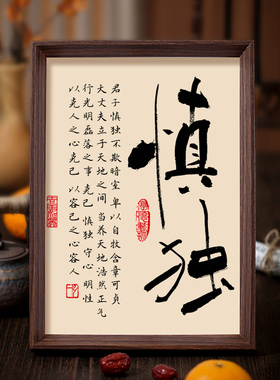 慎独
君子慎独不欺暗室卑以自牧含章可贞
大丈夫立于天地之间当养天地浩然正气
行光明磊落之事克己 慎独 守心明性
以克人之心克己 以容己之心容人